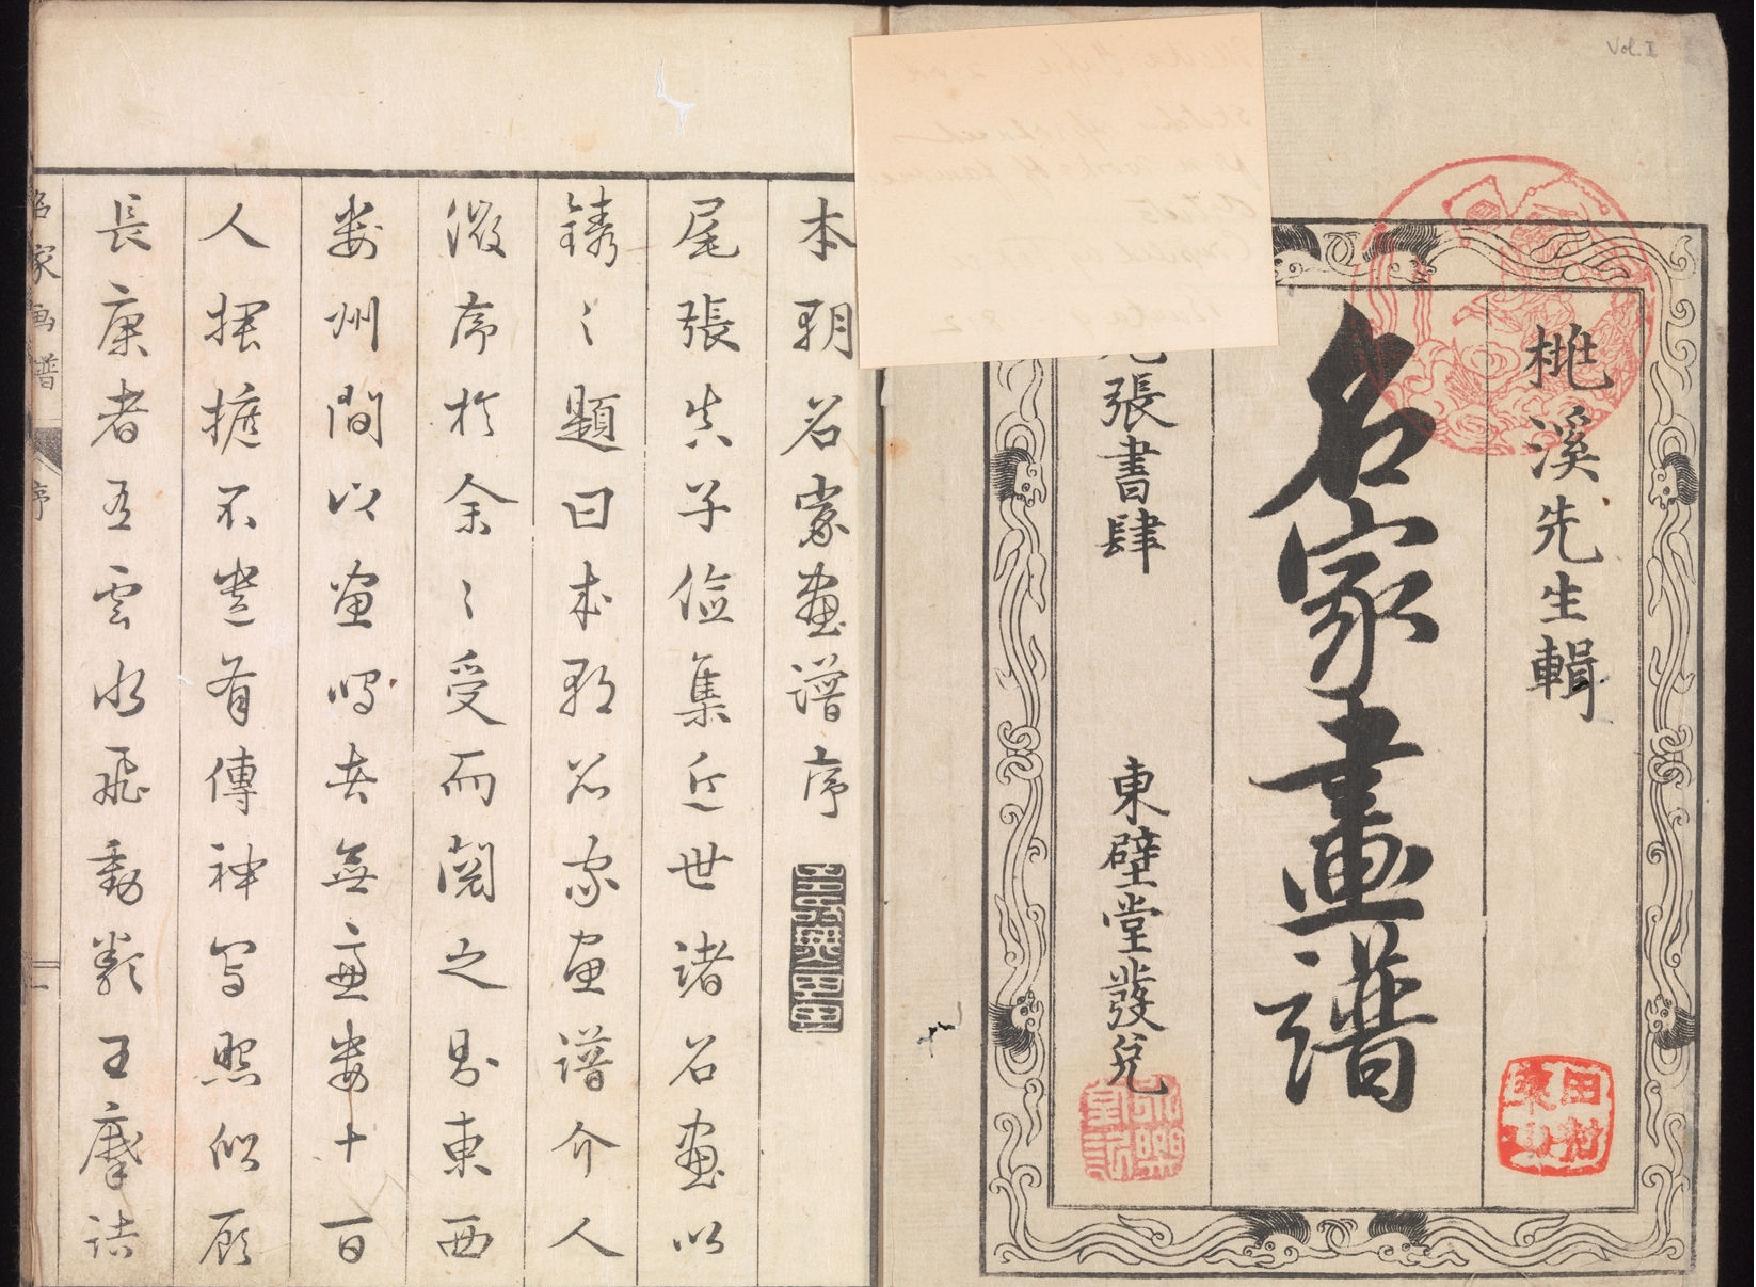 Vol. I
桃溪先生輯
名家畫譜
張書肆　東壁堂發兌
本朝名家畫譜序
尾張子儉集近世諸名畫以
鐫〻題曰本朝名家畫譜介人
徵序於余〻受而閱之則東西
數州間以畫鳴者無慮數十百
人捃摭不遺有傳神寫照似顧
長康者有雲水飛動類王摩詰
名家画譜　序　一